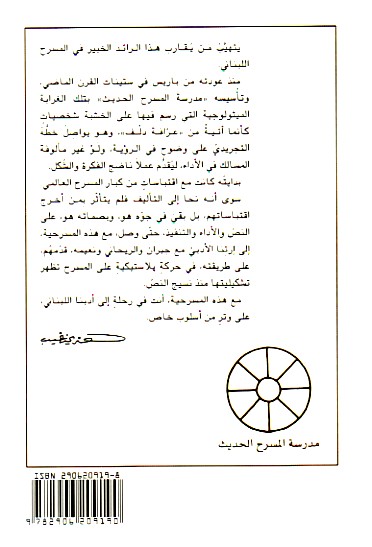 يتهيّب من يقارب هذا الرائد الخبير في المسرح
اللبناني.
منذ عودته من باريس في ستينات القرن الماضي،
وتأسيسه «مدرسة المسرح الحديث» بتلك الغرابة
الميتولوجية التي رسم فيها على الخشبة شخصيات
كأنما آتية من «عرافة دلف»، وهو يواصل خطّه
التجريديّ على وضوح في الرؤية، ولو غير مألوفة
المسالك في الأداء، ليقدّم عملاً ناضج الفكرة والشكل.
بدايته كانت مع اقتباسات من كبار المسرح العالمي
سوى أنه نحا إلى التأليف فلم يتأثر بمن أخرج
اقتباساتهم، بل بقي في جوّه هو، وبصماته هو، على
النص والأداء والتنفيذ، حتى وصل، مع هذه المسرحية،
إلى إرثنا الأدبيّ مع جبران والريحاني ونعيمه، قدّمهم،
على طريقته، في حركة پلاستيكية على المسرح تظهر
تشكيليتها منذ نسيج النص.
مع هذه المسرحية، أنت في رحلة إلى أدبنا اللبناني،
على وتر من أسلوب خاص.
مدرسة المسرح الحديث
ISBN 290620919-8
9 782906 209190